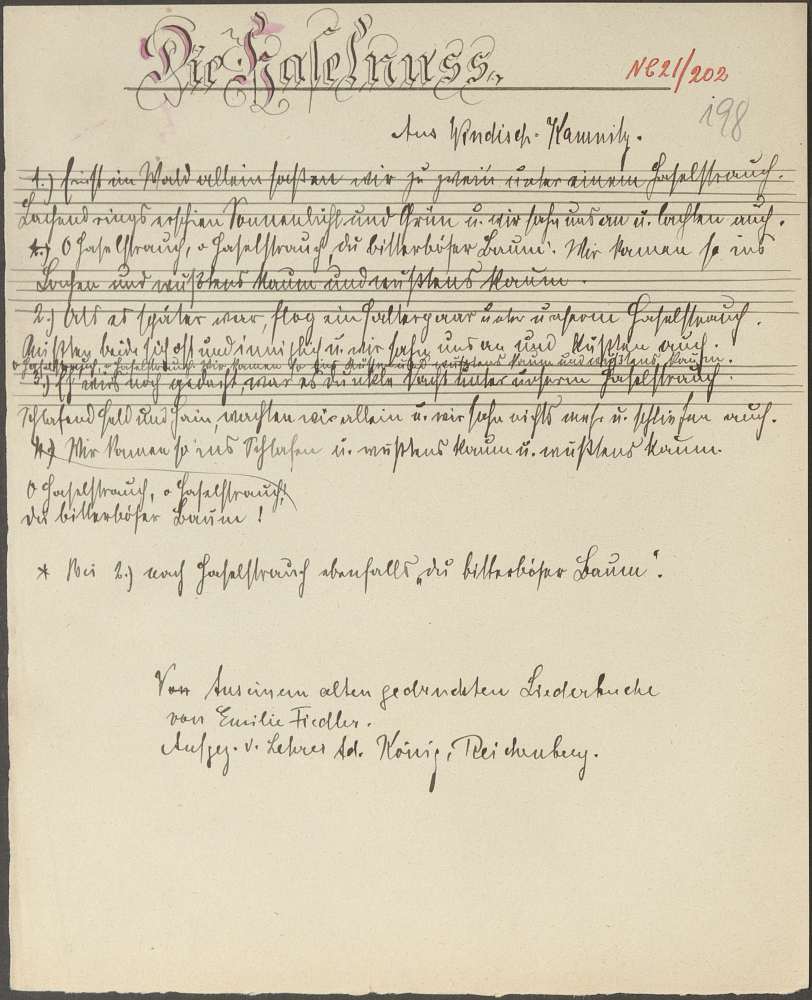 Die Haselnuss.
NC21/202
198
Aus Windisch-Kamnitz.
1.) Einst im Wald allein saßen wir zu zwein unter einem Haselstrauch.
Lachend rings erschien Sonnenlicht und Grün u. wir sahn uns an u. lachten auch.
O Haselstrauch, o Haselstrauch, du bitterböser Baum! Wir kamen so ins
Lachen und wußtens kaum und wußtens kaum.
2.) Als es später war, flog ein Falterpaar unter unserm Haselstrauch.
Küßten beide sich oft und inniglich u. wir sahn uns an und küßten auch.
o Haselstrauch, o Haselstrauch Wir kamen so ins Küssen und wußtens kaum und wußtens kaum.
3.) Eh wirs noch gedacht, war es dunkle Nacht unter unserm Haselstrauch.
Schlafend Feld und Hain, wachten wir allein u. wir sahn nichts mehr u. schliefen auch.
Wir kamen so ins Schlafen u. wußtens kaum u. wußtens kaum.
O Haselstrauch, o Haselstrauch,
du bitterböser Baum!
* Bei 2.) nach Haselstrauch ebenfalls „du bitterböser Baum“.
Aus einem alten gedruckten Liederbuche
von Emilie Fiedler.
Aufgez. v. Lehrer Ad. König, Reichenberg.